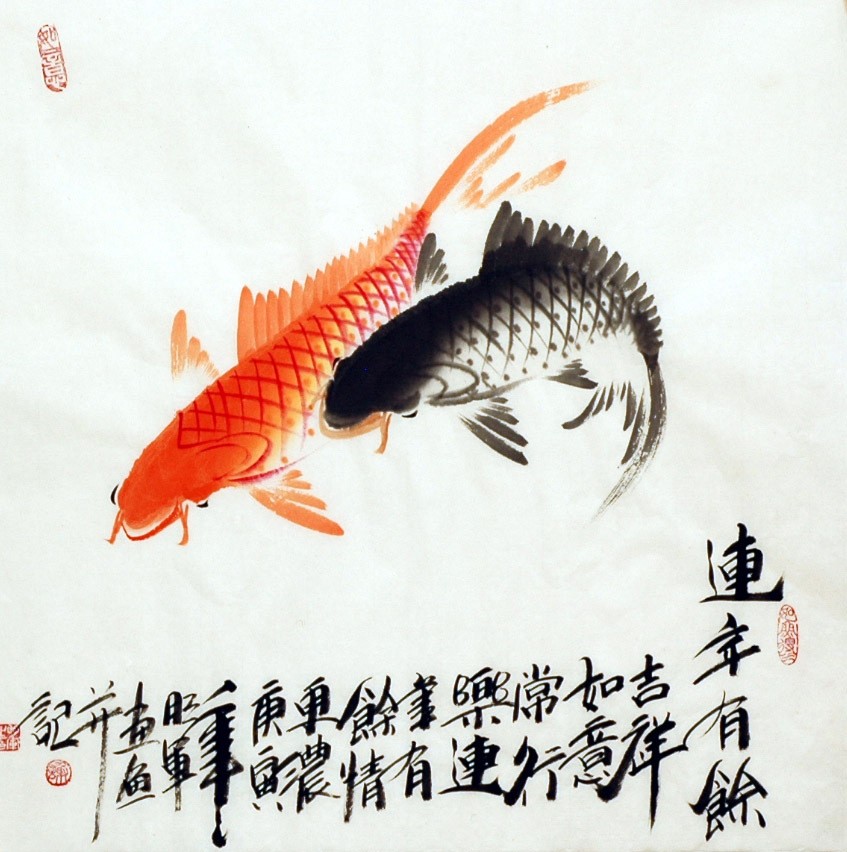 連年有餘
吉祥
如意
常行
樂連
年有
餘情
更濃
庚寅
年
昭軍
畫魚
并
記